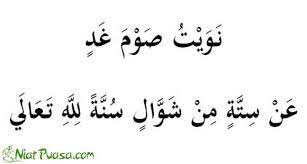 نَوَيْتُ صَوْمَ غَدٍ
عَنْ سِتَّةٍ مِنْ شَوَّالٍ سُنَّةً لِلَّهِ تَعَالَي
NiatPuasa.com